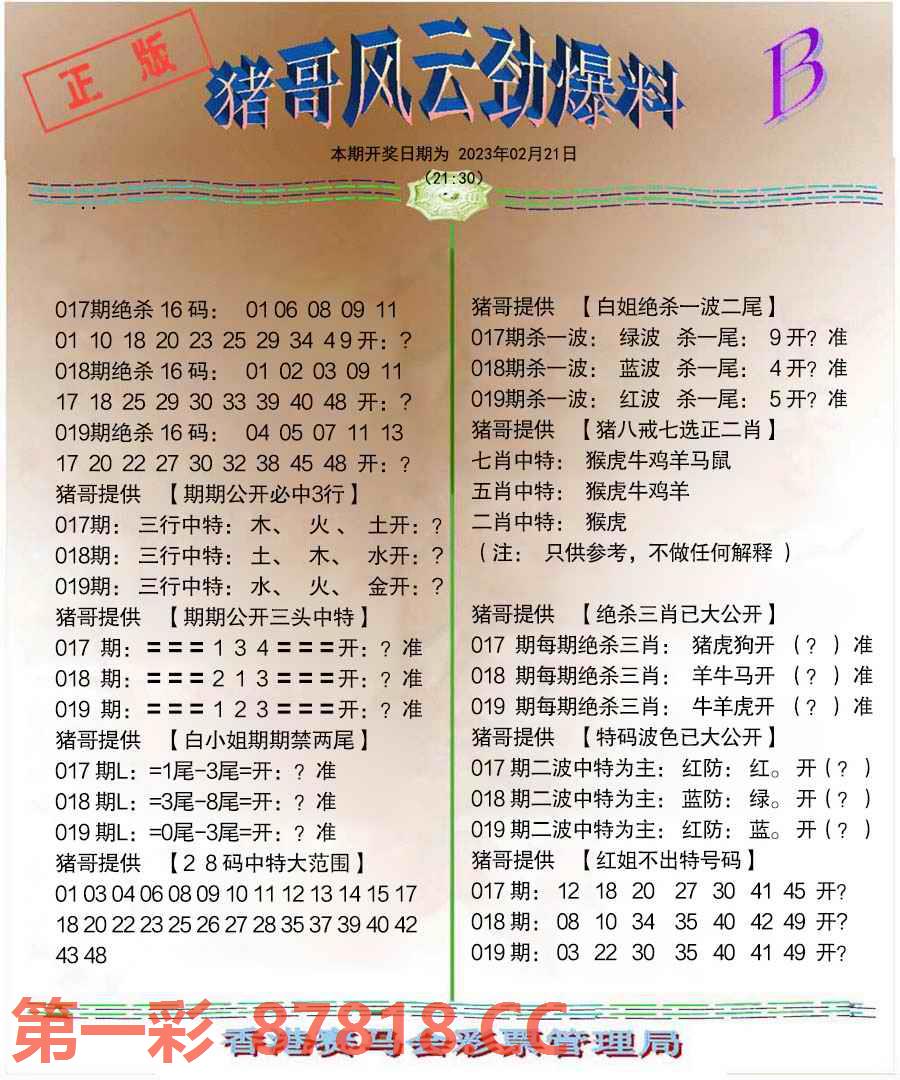 正版
猪哥风云劲爆料
B
本期开奖日期为 2023年02月21日
(21:30)
017期绝杀16码: 01 06 08 09 11
01 10 18 20 23 25 29 34 49开:?
018期绝杀16码: 01 02 03 09 11
17 18 25 29 30 33 39 40 48 开:?
019期绝杀16码: 04 05 07 11 13
17 20 22 27 30 32 38 45 48 开:?
猪哥提供 【期期公开必中3行】
017期: 三行中特: 木、 火、 土开:?
018期: 三行中特: 土、 木、 水开:?
019期: 三行中特: 水、 火、 金开:?
猪哥提供 【期期公开三头中特】
017 期:===1 3 4===开:? 准
018 期:===2 1 3===开:? 准
019 期:===1 2 3===开:? 准
猪哥提供 【白小姐期期禁两尾】
017期L:=1尾-3尾=开:? 准
018期L:=3尾-8尾=开:? 准
019期L:=0尾-3尾=开:? 准
猪哥提供 【28码中特大范围】
01 03 04 06 08 09 10 11 12 13 14 15 17
18 20 22 23 25 26 27 28 35 37 39 40 42
43 48
猪哥提供 【白姐绝杀一波二尾】
017期杀一波: 绿波 杀一尾: 9开? 准
018期杀一波: 蓝波 杀一尾: 4开? 准
019期杀一波: 红波 杀一尾: 5开? 准
猪哥提供 【猪八戒七选正二肖】
七肖中特: 猴虎牛鸡羊马鼠
五肖中特: 猴虎牛鸡羊
二肖中特: 猴虎
(注: 只供参考,不做任何解释)
猪哥提供 【绝杀三肖已大公开】
017 期每期绝杀三肖: 猪虎狗开 (?)准
018 期每期绝杀三肖: 羊牛马开 (?)准
019 期每期绝杀三肖: 牛羊虎开 (?)准
猪哥提供 【特码波色已大公开】
017期二波中特为主: 红防: 红。开(?)
018期二波中特为主: 蓝防: 绿。开(?)
019期二波中特为主: 红防: 蓝。开(?)
猪哥提供 【红姐不出特号码】
017期: 12 18 20 27 30 41 45 开?
018期: 08 10 34 35 40 42 49 开?
019期: 03 22 30 35 40 41 49 开?
第一彩 87818.CC
香港赛马会彩票管理局